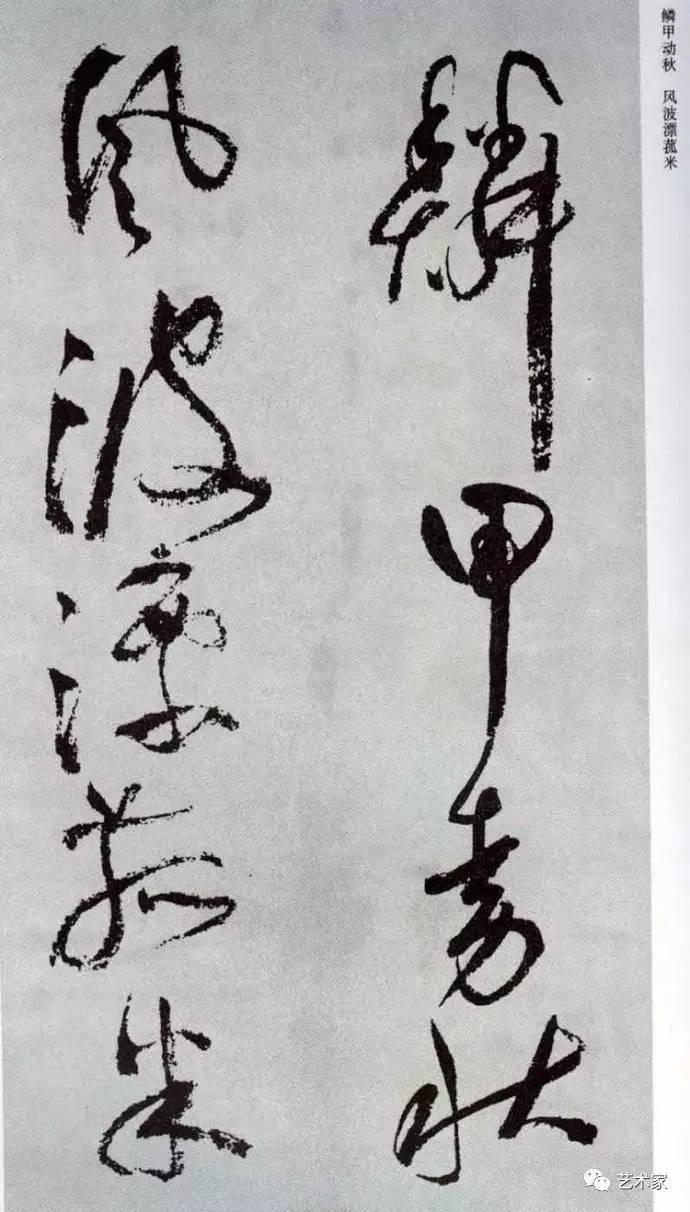 鳞甲动秋 风波漂菰米
鱗甲動秋
風波漂菰米
艺术家